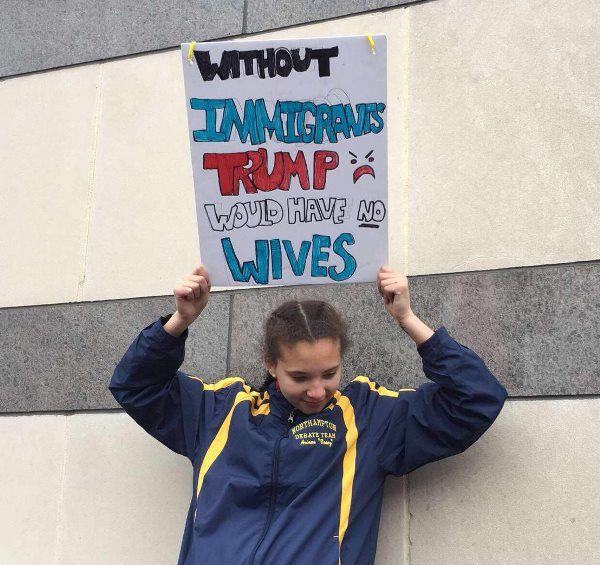 WITHOUT
IMMIGRANTS
TRUMP
WOULD HAVE NO
WIVES
NORTHAMPTON
DEBATE TEAM